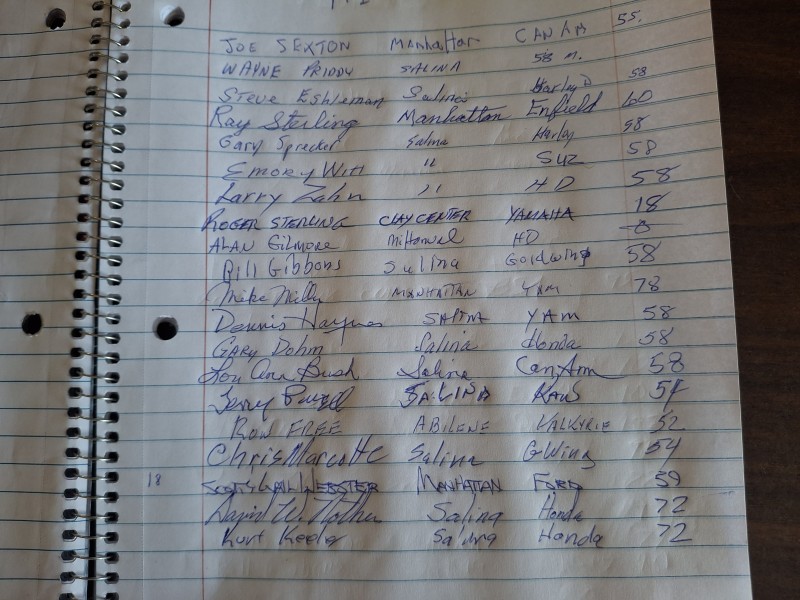 JOE SEXTON Manhattan CAN AM 55.
WAYNE PRIDDY SALINA 58 M.
Steve Eshleman Salina Harley D 58
Ray Sterling Manhattan Enfield 60
Gary Sprecker Salina Harley 58
Emory Witt " SUZ 58
Larry Zahn " HD 58
ROGER STERLING CLAY CENTER YAMAHA 18
ALAN GILMORE HD
Bill Gibbons Salina Goldwing 58
Mike Nilly MANHATTAN YAM 78
Dennis Haynes YAM 58
GARY Dohm Salina Honda 58
Lou Ann Bush Salina Can Am 58
Jerry SALINA KAW
RON FREE ABILENE VALKYRIE 52
Chris Marcotte Salina GWing 54
18 WEBSTER MANHATTAN FORD 59
David W. Salina Honda 72
Kurt Keeler Salina Honda 72